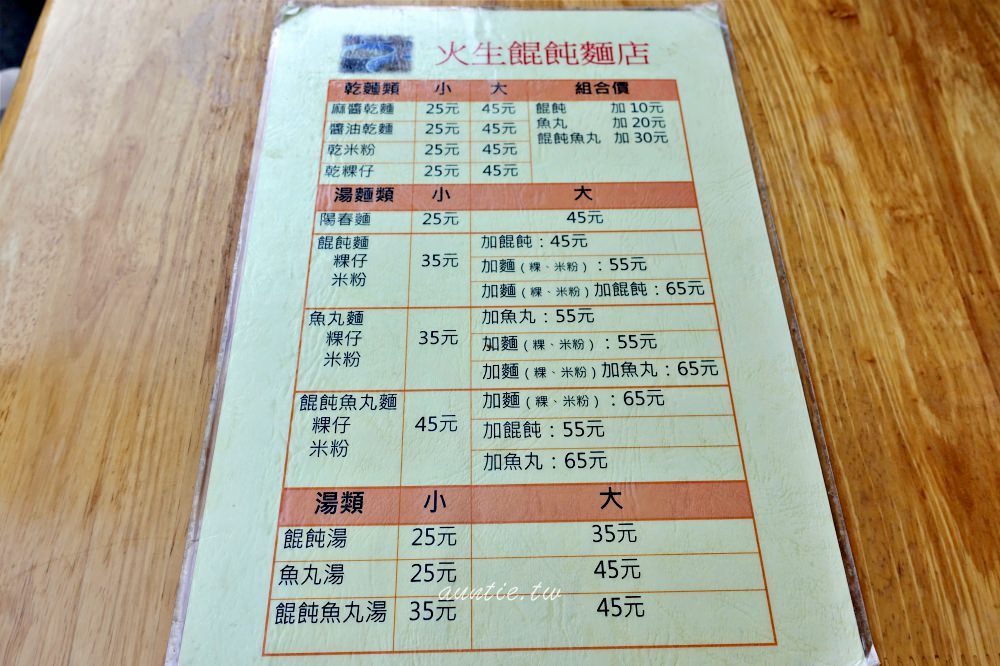 火生餛飩麵店
乾麵類 小 大 組合價
麻醬乾麵 25元 45元 餛飩 加 10元
醬油乾麵 25元 45元 魚丸 加 20元
乾米粉 25元 45元 餛飩魚丸 加 30元
乾粿仔 25元 45元
湯麵類 小 大
陽春麵 25元 45元
餛飩麵 35元 加餛飩：45元
粿仔 加麵（粿、米粉）：55元
米粉 加麵（粿、米粉）加餛飩：65元
魚丸麵 35元 加魚丸：55元
粿仔 加麵（粿、米粉）：55元
米粉 加麵（粿、米粉）加魚丸：65元
餛飩魚丸麵 45元 加麵（粿、米粉）：65元
粿仔 加餛飩：55元
米粉 加魚丸：65元
湯類 小 大
餛飩湯 25元 35元
魚丸湯 25元 45元
餛飩魚丸湯 35元 45元
auntie.tw